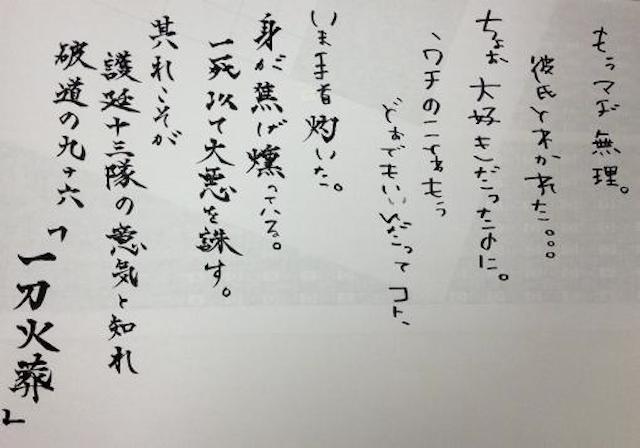 もぅマヂ無理。
彼氏とゎかれた。。。
ちょぉ大好きだったのに。
ゥチのことゎもぅ
どぉでもいぃんだってコト、
いま手首灼いた。
身が焦げ燻っている。
一死以て大悪を誅す。
其れこそが
護廷十三隊の意気と知れ
破道の九十六「一刀火葬」